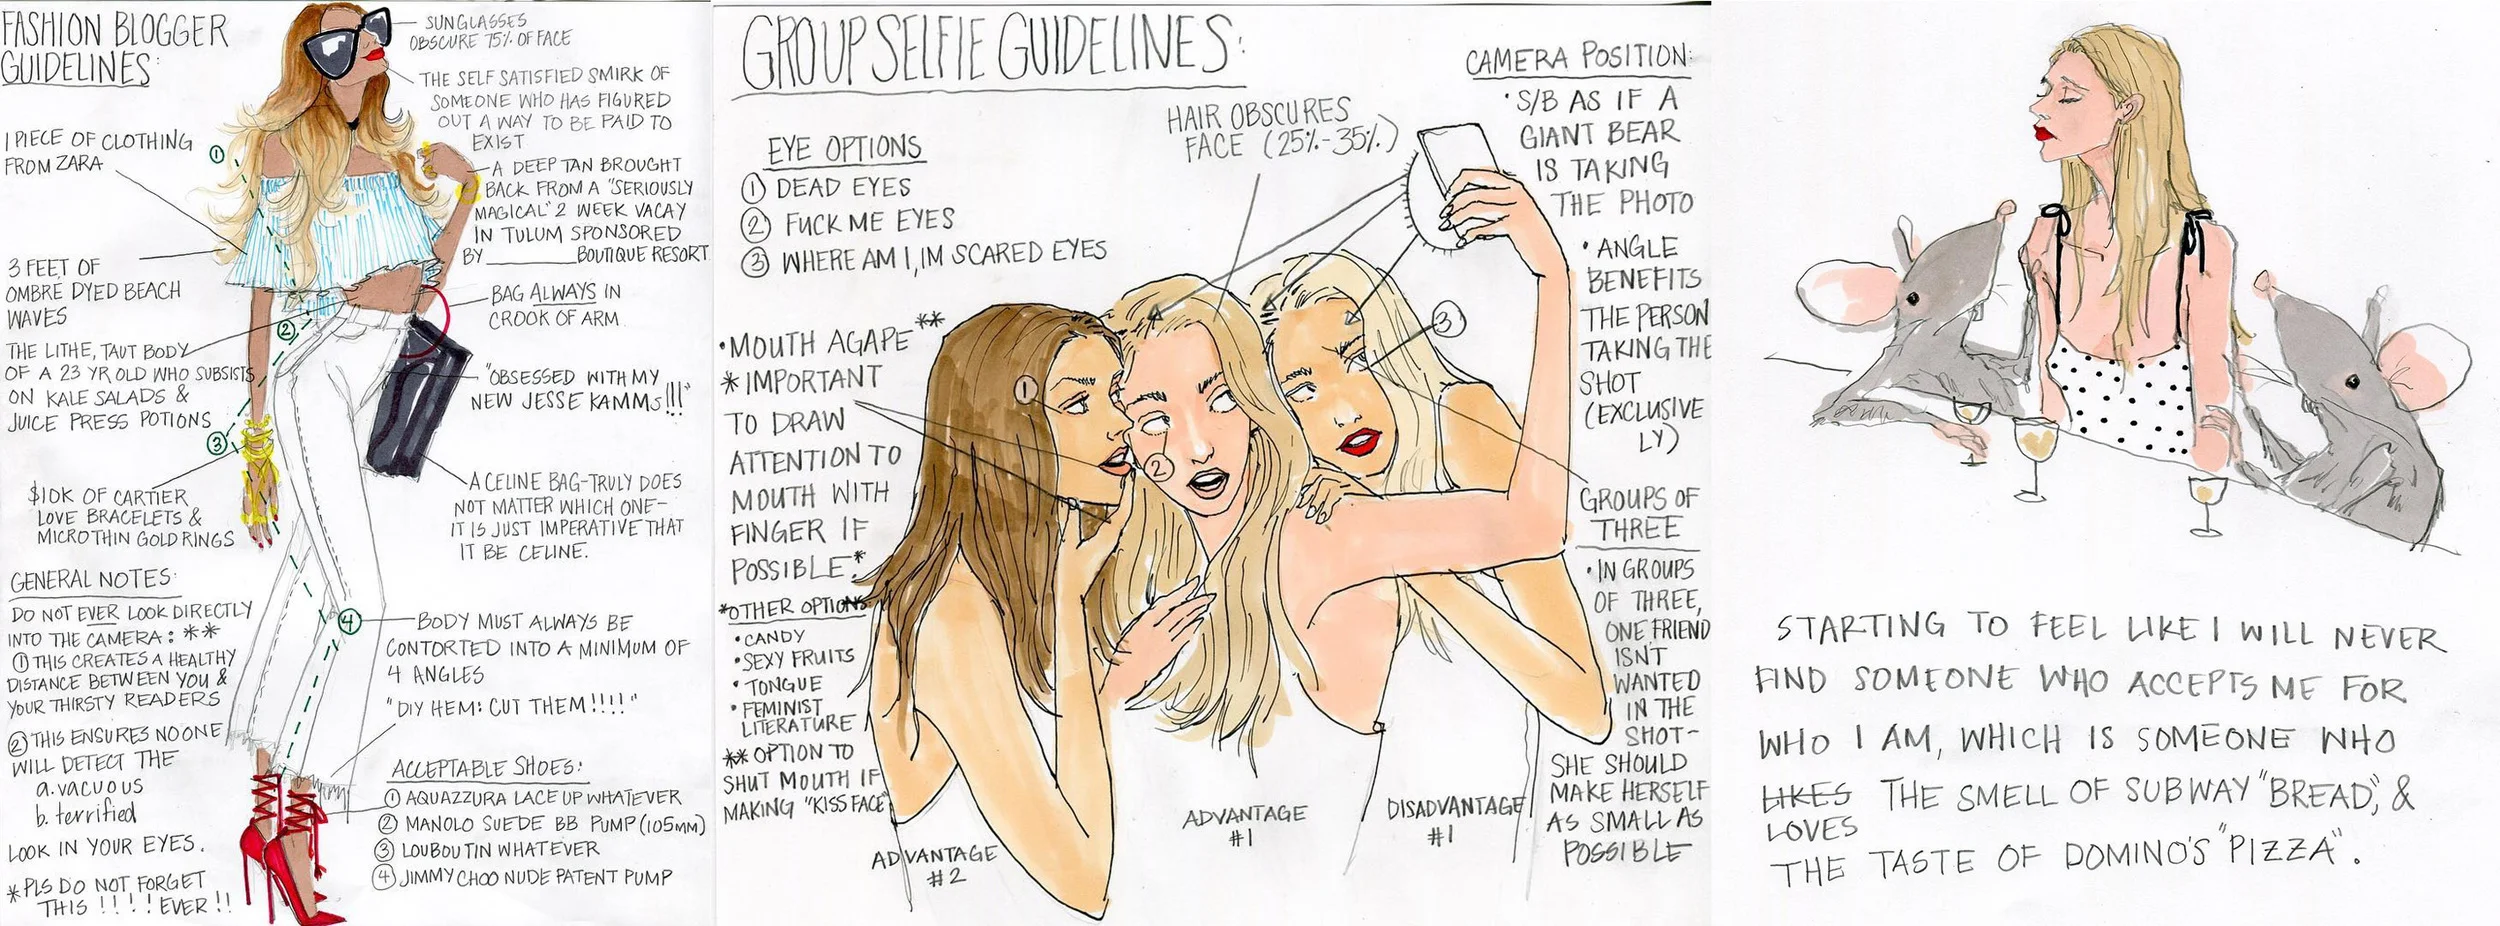 FASHION BLOGGER
GUIDELINES:
SUNGLASSES
OBSCURE 75% OF FACE
THE SELF SATISFIED SMIRK OF
SOMEONE WHO HAS FIGURED
OUT A WAY TO BE PAID TO
EXIST
1 PIECE OF CLOTHING
FROM ZARA
①
A DEEP TAN BROUGHT
BACK FROM A "SERIOUSLY
MAGICAL" 2 WEEK VACAY
IN TULUM SPONSORED
BY ________ BOUTIQUE RESORT
3 FEET OF
OMBRE DYED BEACH
WAVES
BAG ALWAYS IN
CROOK OF ARM
②
THE LITHE, TAUT BODY
OF A 23 YR OLD WHO SUBSISTS
ON KALE SALADS &
JUICE PRESS POTIONS
"OBSESSED WITH MY
NEW JESSE KAMMS!!!"
③
$10K OF CARTIER
LOVE BRACELETS &
MICROTHIN GOLD RINGS
A CELINE BAG-TRULY DOES
NOT MATTER WHICH ONE-
IT IS JUST IMPERATIVE THAT
IT BE CELINE.
GENERAL NOTES:
DO NOT EVER LOOK DIRECTLY
INTO THE CAMERA: **
① THIS CREATES A HEALTHY
DISTANCE BETWEEN YOU &
YOUR THIRSTY READERS
② THIS ENSURES NO ONE
WILL DETECT THE
a. vacuous
b. terrified
LOOK IN YOUR EYES.
*PLS DO NOT FORGET
THIS !!!! EVER !!
④
BODY MUST ALWAYS BE
CONTORTED INTO A MINIMUM OF
4 ANGLES
"DIY HEM: CUT THEM!!!!"
ACCEPTABLE SHOES:
① AQUAZZURA LACE UP WHATEVER
② MANOLO SUEDE BB PUMP (105MM)
③ LOUBOUTIN WHATEVER
④ JIMMY CHOO NUDE PATENT PUMP
GROUP SELFIE GUIDELINES:
EYE OPTIONS
① DEAD EYES
② FUCK ME EYES
③ WHERE AM I, IM SCARED EYES
HAIR OBSCURES
FACE (25%-35%)
CAMERA POSITION:
• S/B AS IF A
GIANT BEAR
IS TAKING
THE PHOTO
• ANGLE
BENEFITS
THE PERSON
TAKING THE
SHOT
(EXCLUSIVE
LY)
• MOUTH AGAPE**
* IMPORTANT
TO DRAW
ATTENTION TO
MOUTH WITH
FINGER IF
POSSIBLE.*
*OTHER OPTIONS
• CANDY
• SEXY FRUITS
• TONGUE
• FEMINIST
LITERATURE
** OPTION TO
SHUT MOUTH IF
MAKING "KISS FACE"
①
②
③
GROUPS OF
THREE
• IN GROUPS
OF THREE,
ONE FRIEND
ISN'T
WANTED
IN THE
SHOT-
SHE SHOULD
MAKE HERSELF
AS SMALL AS
POSSIBLE
ADVANTAGE
#2
ADVANTAGE
#1
DISADVANTAGE
#1
STARTING TO FEEL LIKE I WILL NEVER
FIND SOMEONE WHO ACCEPTS ME FOR
WHO I AM, WHICH IS SOMEONE WHO
LIKES THE SMELL OF SUBWAY "BREAD", &
LOVES
THE TASTE OF DOMINO'S "PIZZA".